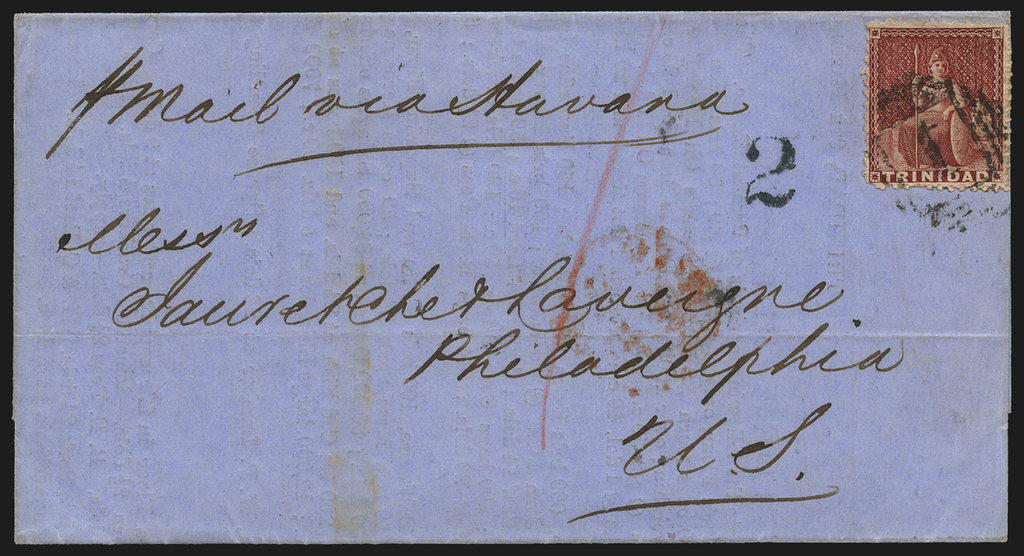 ⅌ Mail via Havana
TRINIDAD
2
Messrs
Jauretche & Lavergne
Philadelphia
U. S.